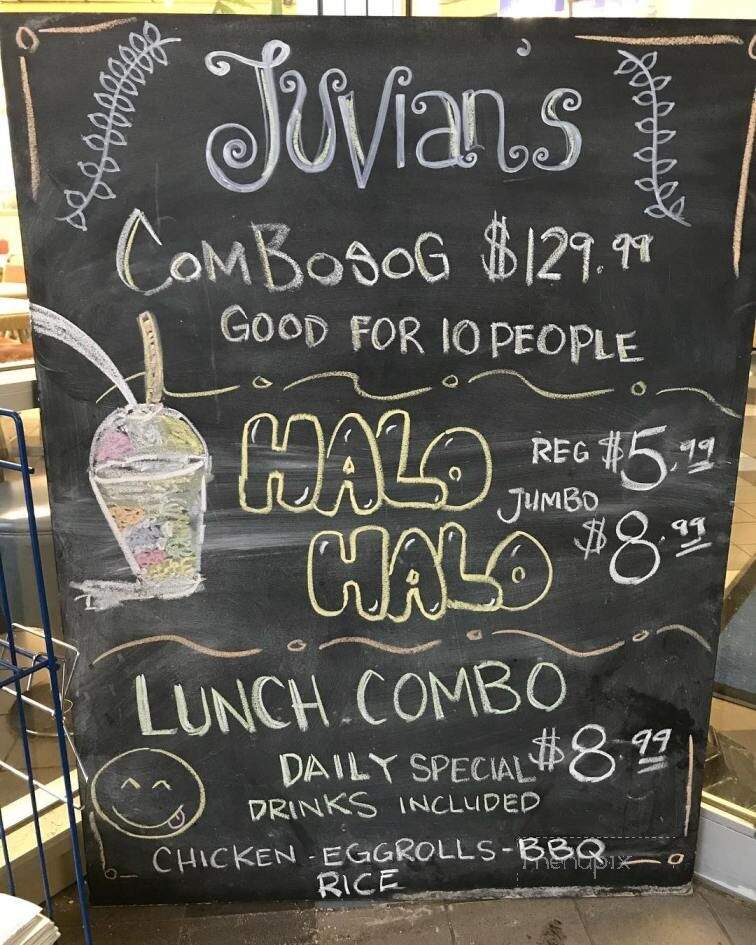 Juvian's
COMBOSOG $129.99
GOOD FOR 10 PEOPLE
HALO REG $5.99
JUMBO
HALO $8.99
LUNCH COMBO
DAILY SPECIAL $8.99
DRINKS INCLUDED
CHICKEN - EGGROLLS - BBQ
RICE
menupix